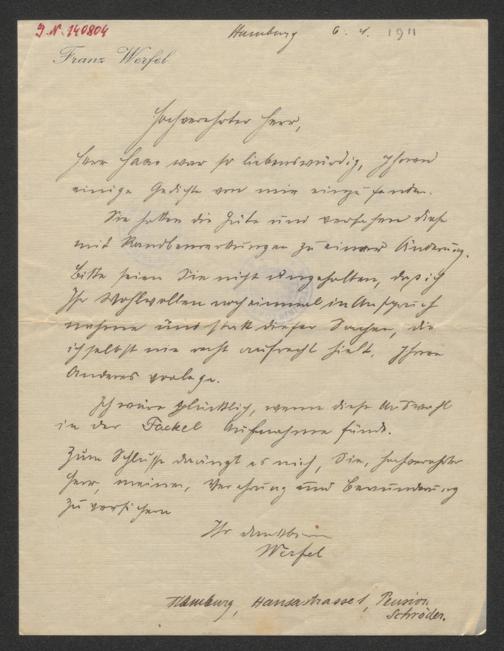 I.N. 140804
Hamburg 6. 4. 1911
Franz Werfel
Hochverehrter Herr,
Herr Haas war so liebenswürdig, Ihnen
einige Gedichte von mir einzusenden.
Sie hatten die Güte und versehen diese
mit Randbemerkungen zu einer Änderung.
Bitte seien Sie nicht ungehalten, daß ich
Ihr Wohlwollen noch einmal in Anspruch
nehme und statt dieser Sachen, die
ich selbst nie recht aufrecht hielt, Ihnen
Anderes vorlege.
Ich wäre glücklich, wenn diese Auswahl
in der Fackel Aufnahme fände.
Zum Schlusse drängt es mich, Sie, hochverehrter
Herr, meiner Verehrung und Bewunderung
zu versichern
Ihr
Werfel
Hamburg, Hansastrasse 1, Pension
Schröder.